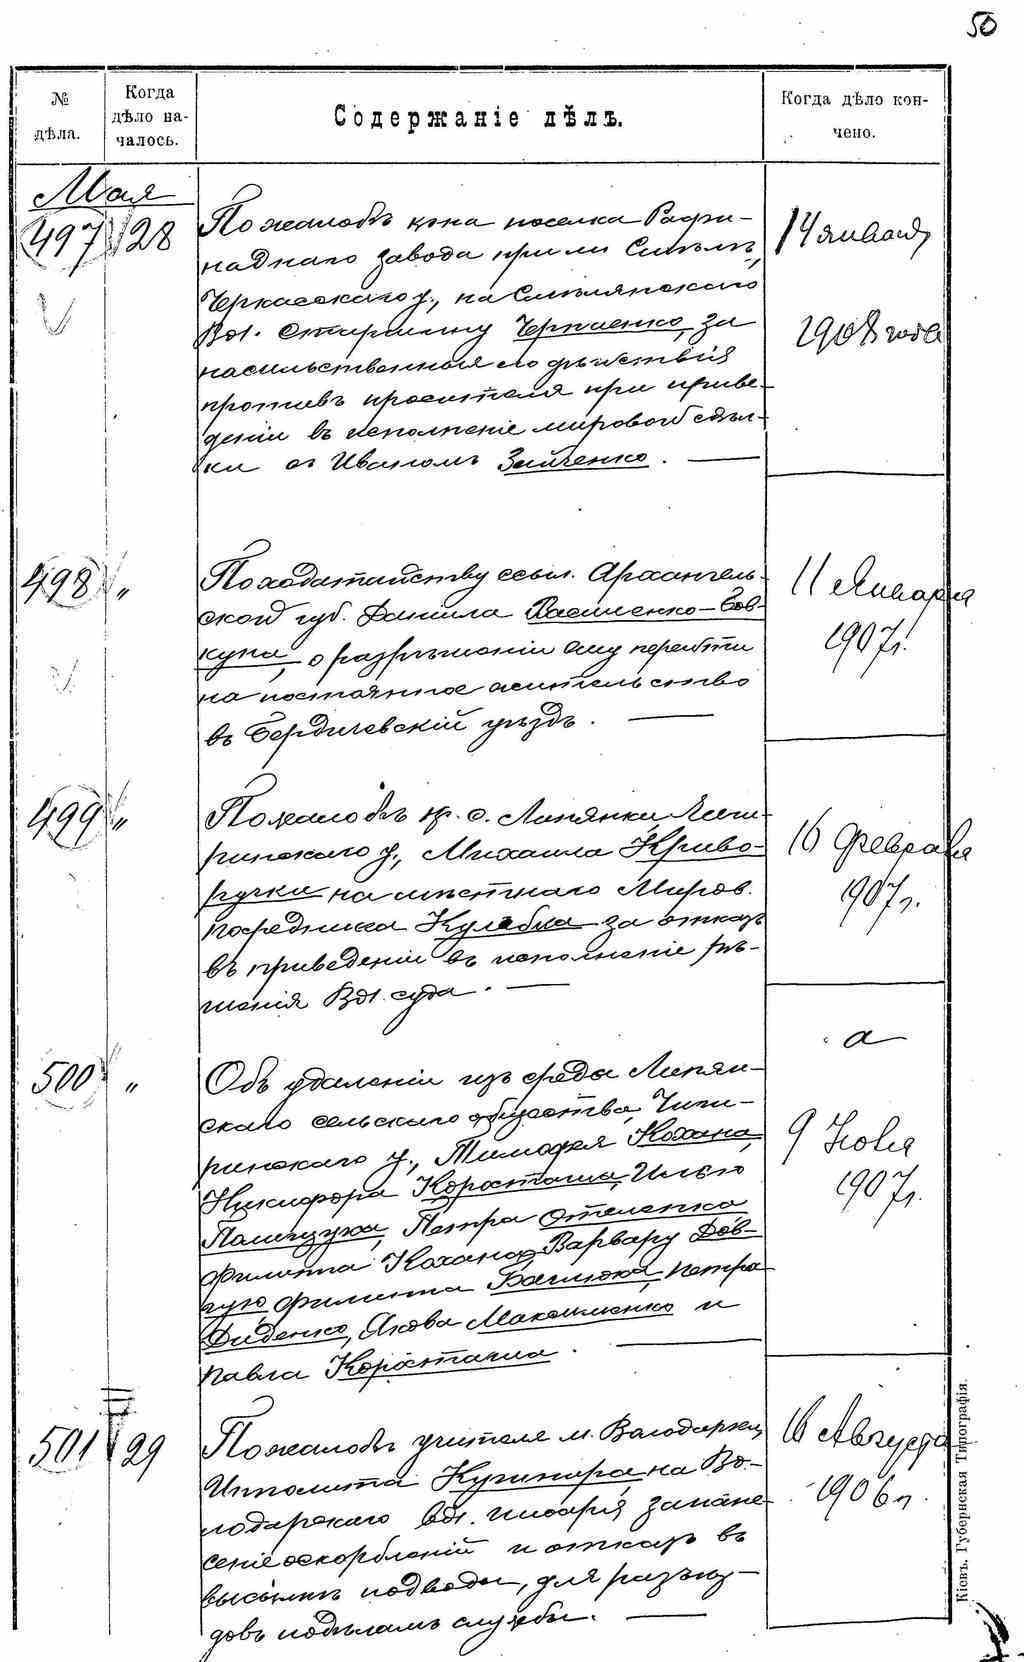 50
№ дѣла.
Когда дѣло началось.
Содержаніе дѣлъ.
Когда дѣло кончено.
Мая
497 28
По жалобѣ поселка Рафи-
наднаго завода при м. Смѣлѣ,
Черкасскаго у., на Смѣлянскаго
Вол. Старшину Черненко, за
насильственныя дѣйствія
противъ просителя при приве-
деніи въ исполненіе мировой сдѣл-
ки съ Иваномъ Зайченко.
14 января
1908 года
498 "
По ходатайству ссыл. Архангель-
ской губ. Данила Василенко-Бов-
куна, о разрѣшеніи ему перейти
на постоянное жительство
въ Бердичевскій уѣздъ.
11 Января
1907 г.
499 "
По жалобѣ кр. с. Липянки Чиги-
ринскаго у., Михаила Криво-
ручки на мѣстнаго Миров.
посредника Кулябка за отказъ
въ приведеніи въ исполненіе рѣ-
шенія Вол. суда.
16 Февраля
1907 г.
500 "
Объ удаленіи изъ среды Липян-
скаго сельскаго общества, Чиги-
ринскаго у., Тимофея Кохана,
Никифора Коросташа, Илью
Полищука, Петра Отеленка
Филиппа Кохана, Варвару Дов-
гую, Филиппа Баглюка, Петра
Диденко, Якова Максименко и
Павла Коросташа.
а
9 Ноя
1907 г.
501 29
По жалобѣ учителя м. Володарки,
Ипполита Кушнира на Во-
лодарскаго вол. писаря за нане-
сеніе оскорбленій и отказъ въ
высылкѣ подводы, для разъѣз-
довъ по дѣламъ службы.
16 Августа
1906 г.
Кіевъ. Губернская Типографія.